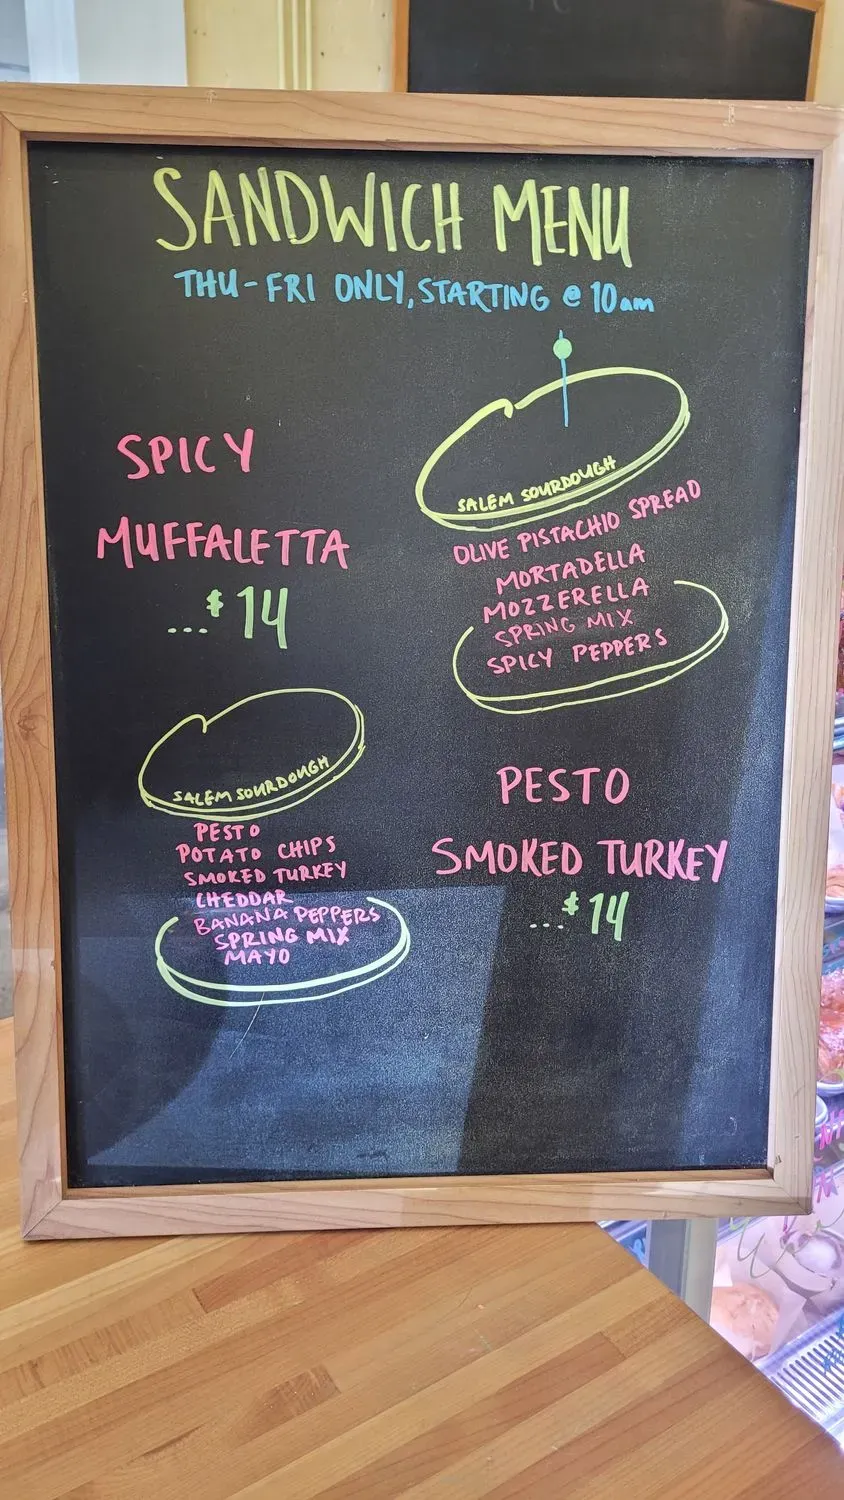 SANDWICH MENU
THU-FRI ONLY, STARTING @ 10am
SPICY
MUFFALETTA
...$14
SALEM SOURDOUGH
OLIVE PISTACHIO SPREAD
MORTADELLA
MOZZERELLA
SPRING MIX
SPICY PEPPERS
SALEM SOURDOUGH
PESTO
POTATO CHIPS
SMOKED TURKEY
CHEDDAR
BANANA PEPPERS
SPRING MIX
MAYO
PESTO
SMOKED TURKEY
...$14